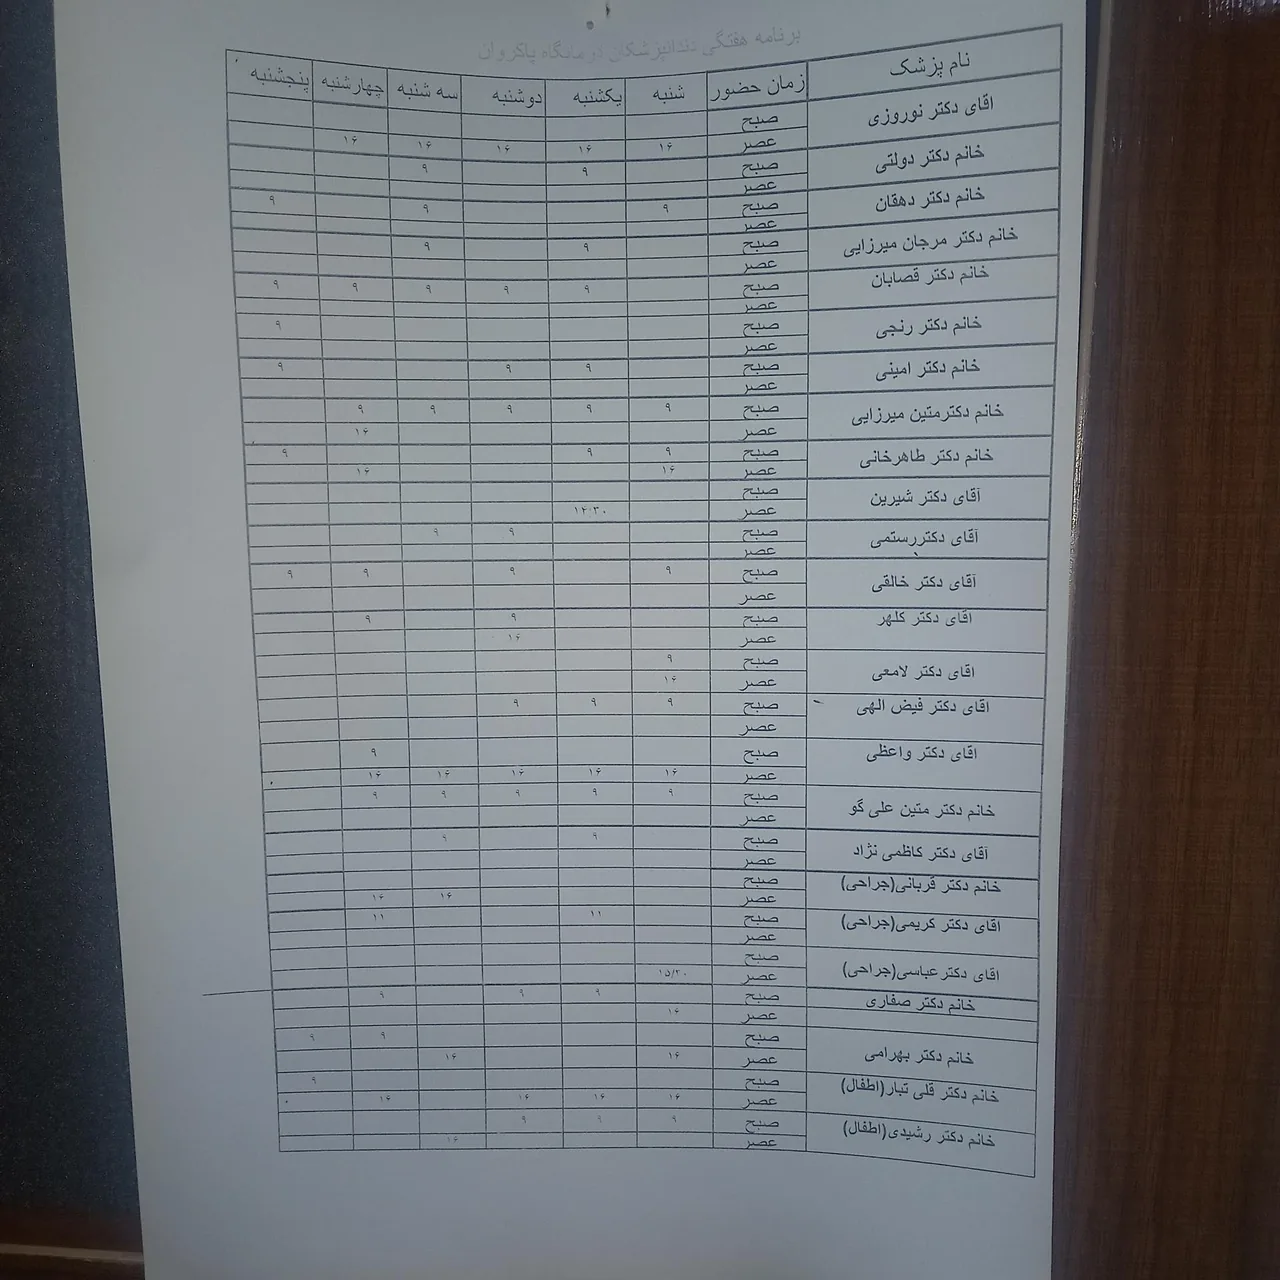 برنامه هفتگی دندانپزشکان درمانگاه پاکروان
نام پزشک زمان حضور شنبه یکشنبه دوشنبه سه شنبه چهارشنبه پنجشنبه
اقای دکتر نوروزی
صبح
عصر ۱۶ ۱۶ ۱۶ ۱۶ ۱۶
خانم دکتر دولتی
صبح ۹ ۹
عصر
خانم دکتر دهقان
صبح ۹ ۹ ۹
عصر
خانم دکتر مرجان میرزایی
صبح ۹ ۹
عصر
خانم دکتر قصابان
صبح ۹ ۹ ۹ ۹ ۹
عصر
خانم دکتر رنجی
صبح ۹
عصر
خانم دکتر امینی
صبح ۹ ۹ ۹
عصر
خانم دکترمتین میرزایی
صبح ۹ ۹ ۹ ۹ ۹
عصر ۱۶
خانم دکتر طاهرخانی
صبح ۹ ۹ ۹
عصر ۱۶ ۱۶
آقای دکتر شیرین
صبح
عصر
آقای دکتررستمی
صبح ۹ ۹
عصر
آقای دکتر خالقی
صبح ۹ ۹ ۹ ۹
عصر
اقای دکتر کلهر
صبح ۹ ۹
عصر ۱۶
اقای دکتر لامعی
صبح ۹
عصر ۱۶
اقای دکتر فیض الهی
صبح ۹ ۹ ۹
عصر
اقای دکتر واعظی
صبح ۹
عصر ۱۶ ۱۶ ۱۶ ۱۶ ۱۶
خانم دکتر متین علی گو
صبح ۹ ۹ ۹ ۹ ۹
عصر
آقای دکتر کاظمی نژاد
صبح ۹ ۹
عصر
خانم دکتر قربانی(جراحی)
صبح
عصر ۱۶ ۱۶
اقای دکتر کریمی(جراحی)
صبح ۱۱ ۱۱
عصر
اقای دکترعباسی(جراحی)
صبح
عصر ۱۵/۳۰
خانم دکتر صفاری
صبح ۹ ۹ ۹
عصر ۱۶
خانم دکتر بهرامی
صبح ۹ ۹
عصر ۱۶ ۱۶
خانم دکتر قلی تبار(اطفال)
صبح ۹
عصر ۱۶ ۱۶ ۱۶ ۱۶
خانم دکتر رشیدی(اطفال)
صبح ۹ ۹ ۹
عصر ۱۶